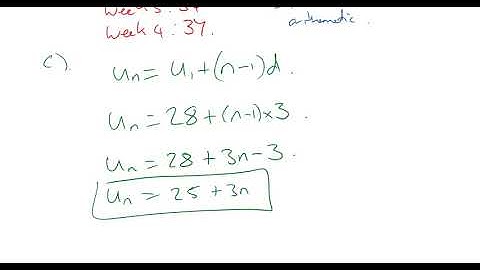 Week 4: 37.
arithmetic
c).
Un = U1 + (n-1)d.
Un = 28 + (n-1)x3.
Un = 28 + 3n - 3.
Un = 25 + 3n